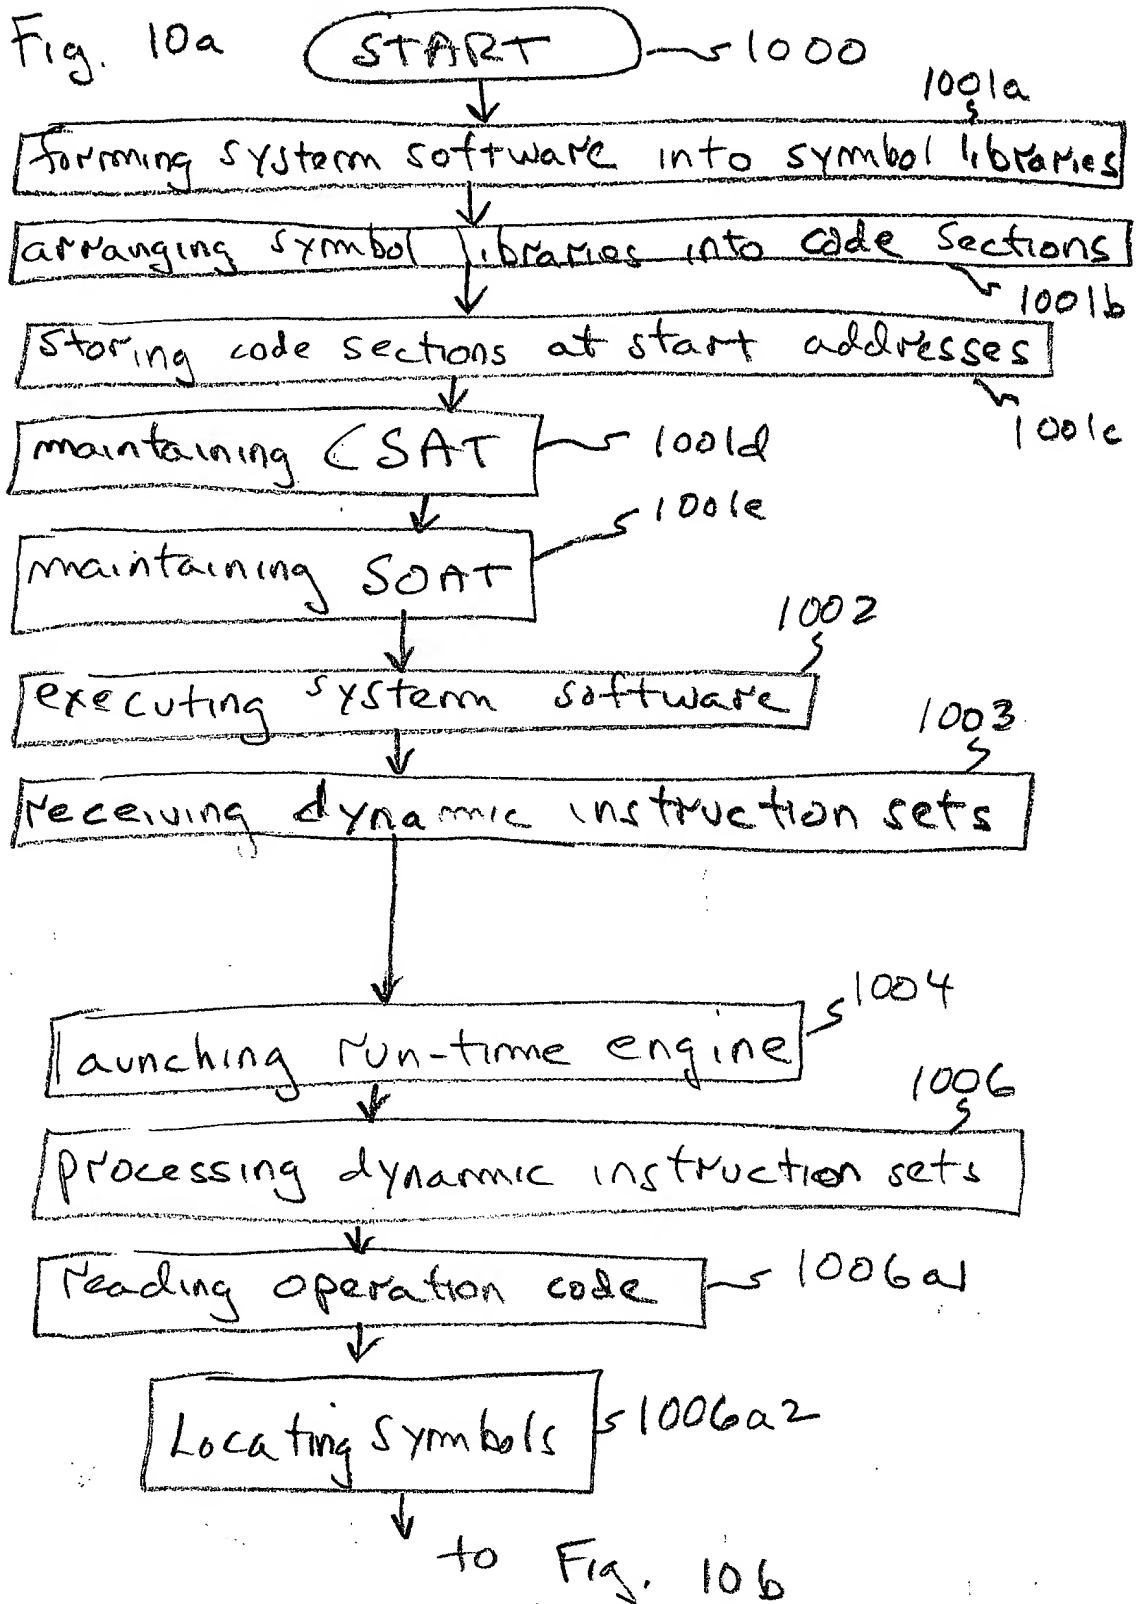 Fig. 10a
START 1000
1001a
forming system software into symbol libraries
arranging symbol libraries into code sections
1001b
storing code sections at start addresses
1001c
maintaining CSAT 1001d
1001e
maintaining SOAT
1002
executing system software
1003
receiving dynamic instruction sets
1004
launching run-time engine
1006
processing dynamic instruction sets
reading operation code 1006a1
Locating symbols 1006a2
to Fig. 10b